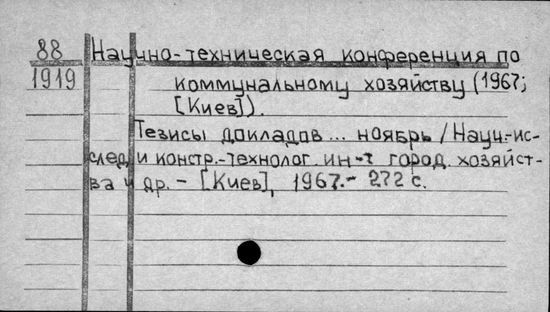 88 Научно-техническая конференция по
1919 коммунальному хозяйству (1967;
[Киев]).
Тезисы докладов... ноябрь / Науч.-ис-
след. и констр.-технолог. ин-т город. хозяйст-
ва и др. - [Киев], 1967.- 272 с.